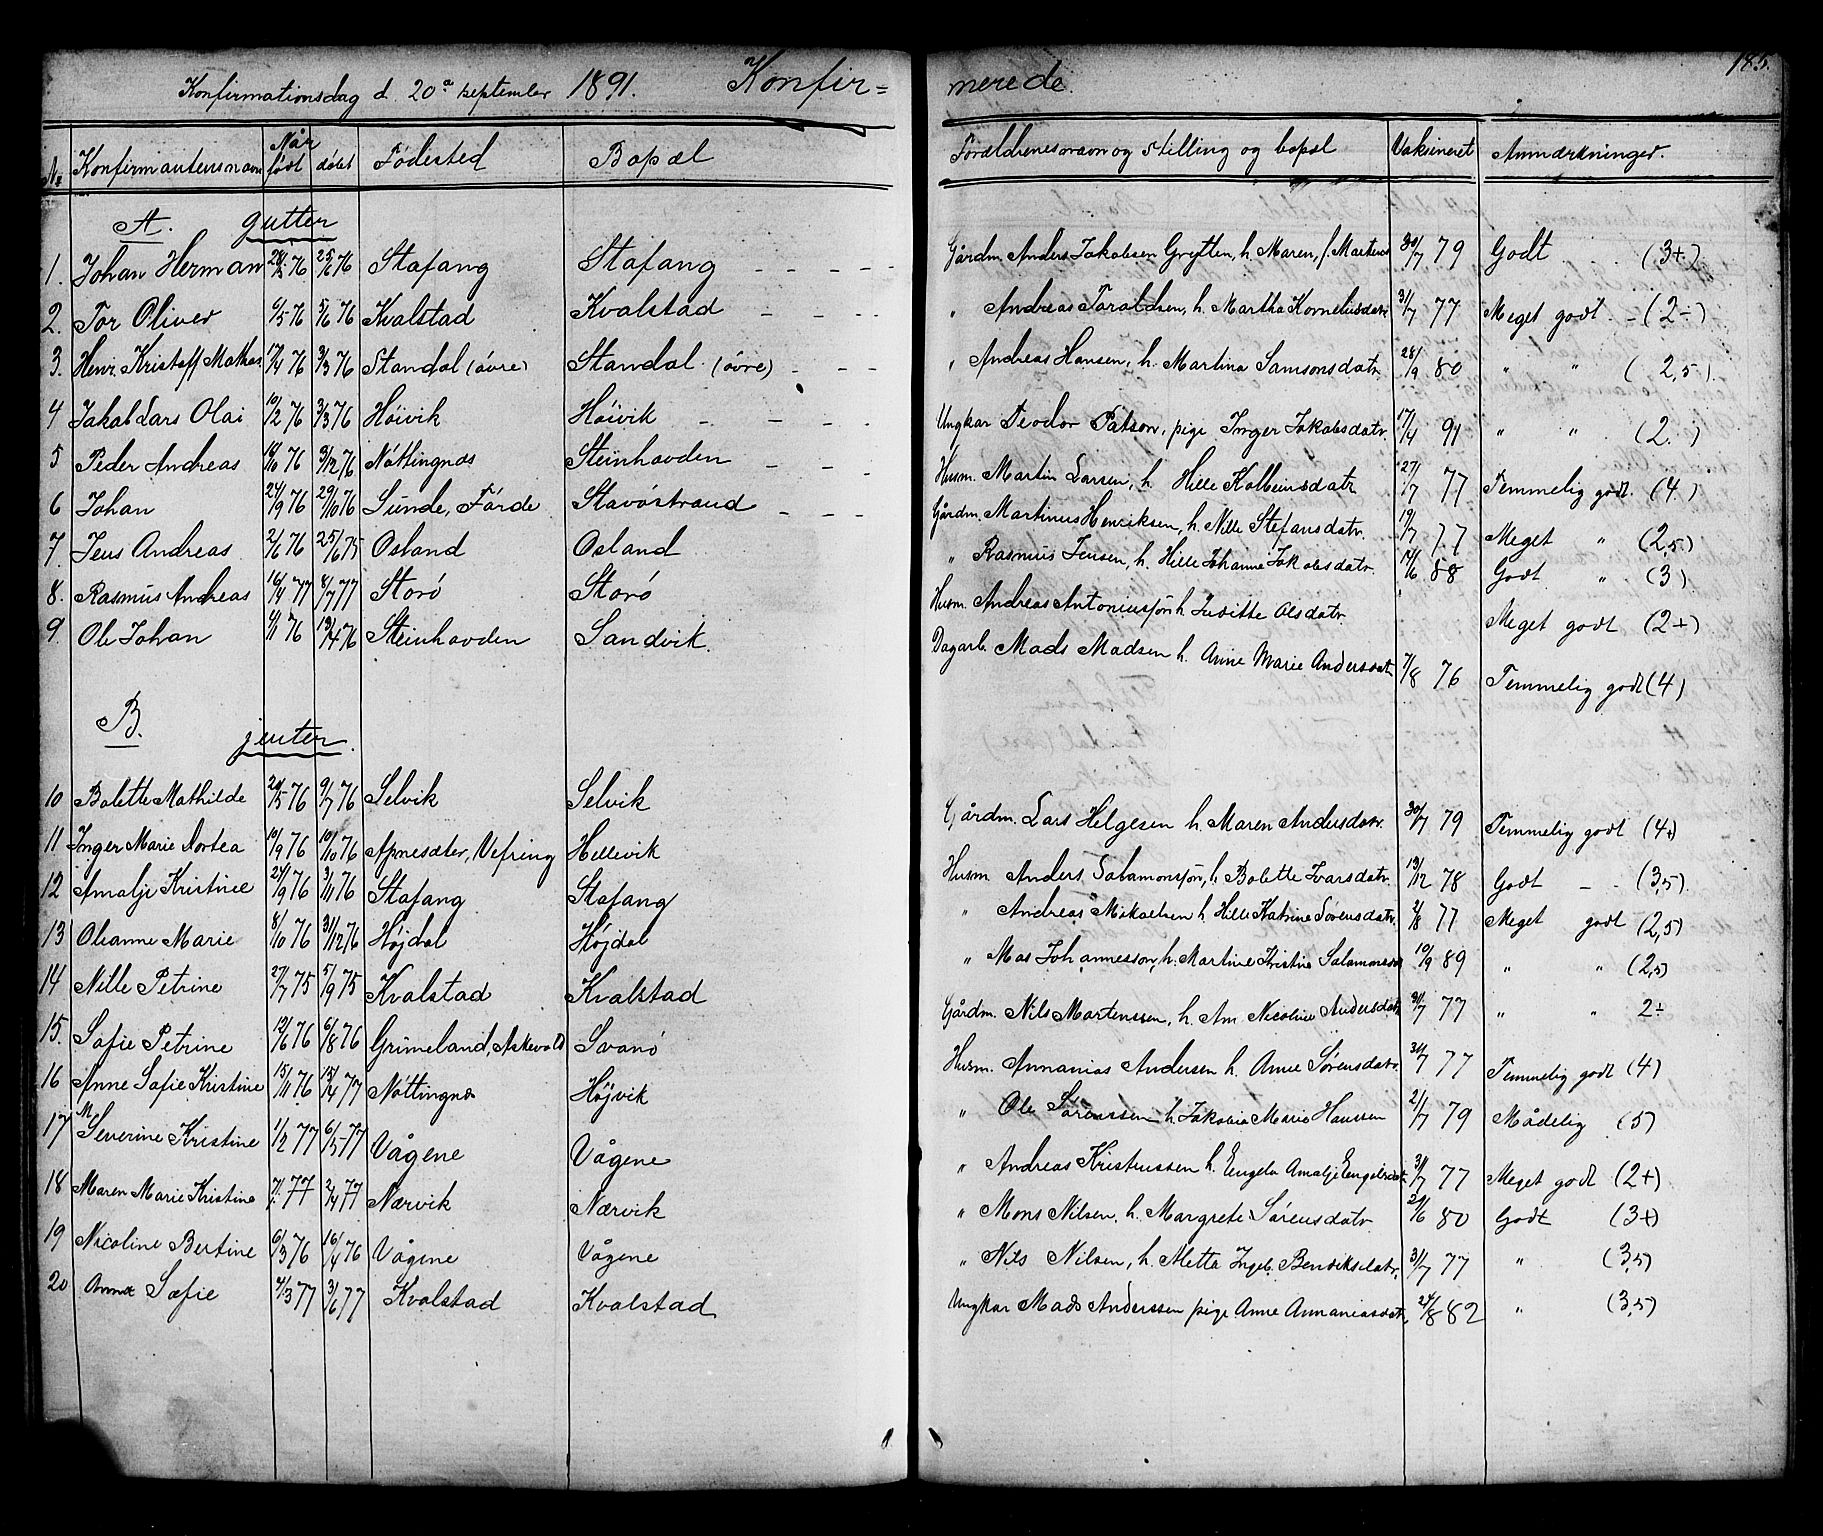 185.
Konfirmationsdag d. 20de september 1891. Konfir= merede.
No Konfirmantens navn Når født døbt Fødested Bopæl Forældrenes navn og stilling og bopæl Vaksineret Anmærkninger.
A. gutter
1. Johan Herman 76 25/6 76 Stafang Stafang Gårdm. Anders Jakobsen Grytten, h. Maren, f. 30/7 79 Godt (3+)
2. Tor Oliver 6/5 76 5/6 76 Kvalstad Kvalstad " Andreas Taraldsen, h. Martha Korneliusdatr 31/7 77 Meget godt (2÷)
3. Henr. Kristoff Mathas 76 3/3 76 Standal (øvre) Standal (øvre) " Andreas Hansen, h. Martina Samsonsdatr 28/9 80 " " (2,5)
4 Jakob Lars Olai 10/2 76 3/3 76 Høivik Høivik Ungkar Teodor Patson, pige Inger Jakobsdatr 17/4 91 " " (2 )
5 Peder Andreas 18/10 76 3/12 76 Nøttingnæs Steinhovden Husm. Martin Larsen, h. Hille Kolbeinsdatr 27/7 77 Temmelig godt. (4)
6 Johan 24/9 76 29/10 76 Sunde, Førde Stavøstrand Gårdm. Martinus Henriksen, h. Nille Stefansdatr. 19/7 77 Meget " (2,5)
7. Jens Andreas 2/6 76 25/6 75 Osland Osland " Rasmus Jensen, h. Hille Johanne Jakobsdatr. 17/6 88 Godt " (3)
8. Rasmus Andreas 16/4 77 8/7 77 Storø Storø Husm. Andreas Antoniussøn h. Judithe Olsdatr " Meget godt (2+)
9. Ole Johan 76 13/4 76 Steinhovden Sandvik. Dagarb. Mads Madsen h. Anne Marie Andersdat 7/8 76 Temmelig godt (4)
B. jenter.
10 Bolette Mathilde 20/5 76 9/7 76 Selvik Selvik Gårdm. Lars Helgesen h. Maren Andersdatr. 30/7 79 Temmelig godt (4+)
11 Inger Marie Dortea 10/9 76 10/10 76 Apnesæter, Vefring Hellevik Husm. Anders Salamonsøn, h. Bolette Ivarsdatr. 13/12 78 Godt - - (3,5).
12 Amalje Kristine 27/9 76 3/11 76 Stafang Stafang " Andreas Mikaelsen h. Hille Katrine Sørensdatr. 2/8 77 Meget godt (2,5)
13 Oleanne Marie 8/10 76 31/12 76 Højdal Højdal " Mas Johannesson, h. Martine Kristine 10/9 89 " " (2,5)
14 Nille Petrine 27/7 75 5/9 75 Kvalstad Kvalstad Gårdm. Nils Martenssen, h. An. Nicoline Andersdatr 31/7 77 " " 2÷
15. Sofie Petrine 12/6 76 6/8 76 Grimeland, Askevold Svanø Husm. Annanias Andersen h. Anne Sørensdatr. 31/7 77 Temmelig godt (4)
16 Anne Sofie Kristine 15/11 76 15/4 77 Nøttingnæs Højvik " Ole Sørenssen h. Jakobia Marie Hanssen 21/7 79 Mådelig (5)
17 M Severine Kristine 1/2 77 6/5 77 Vågene Vågene " Andreas Kristenssen h. Engela Amalje Engelsdat. 31/7 77 Meget godt (2+)
18 Maren Marie Kristine 77 2/4 77 Nærvik Nærvik " Mons Nilsen, h. Margrete Sørensdatr 29/6 80 Godt (3+)
19 Nicoline Bertine 6/3 76 16/4 76 Vågene Vågene " Nils Nilsen, h. Metta Ingeb. Bendiksdatr. 31/7 77 " (3,5)
20 Anna Sofie 4/3 77 3/6 77 Kvalstad Kvalstad Ungkar Mads Anderssen pige Anne Annaniasdatr. 24/8 82 " (3,5)